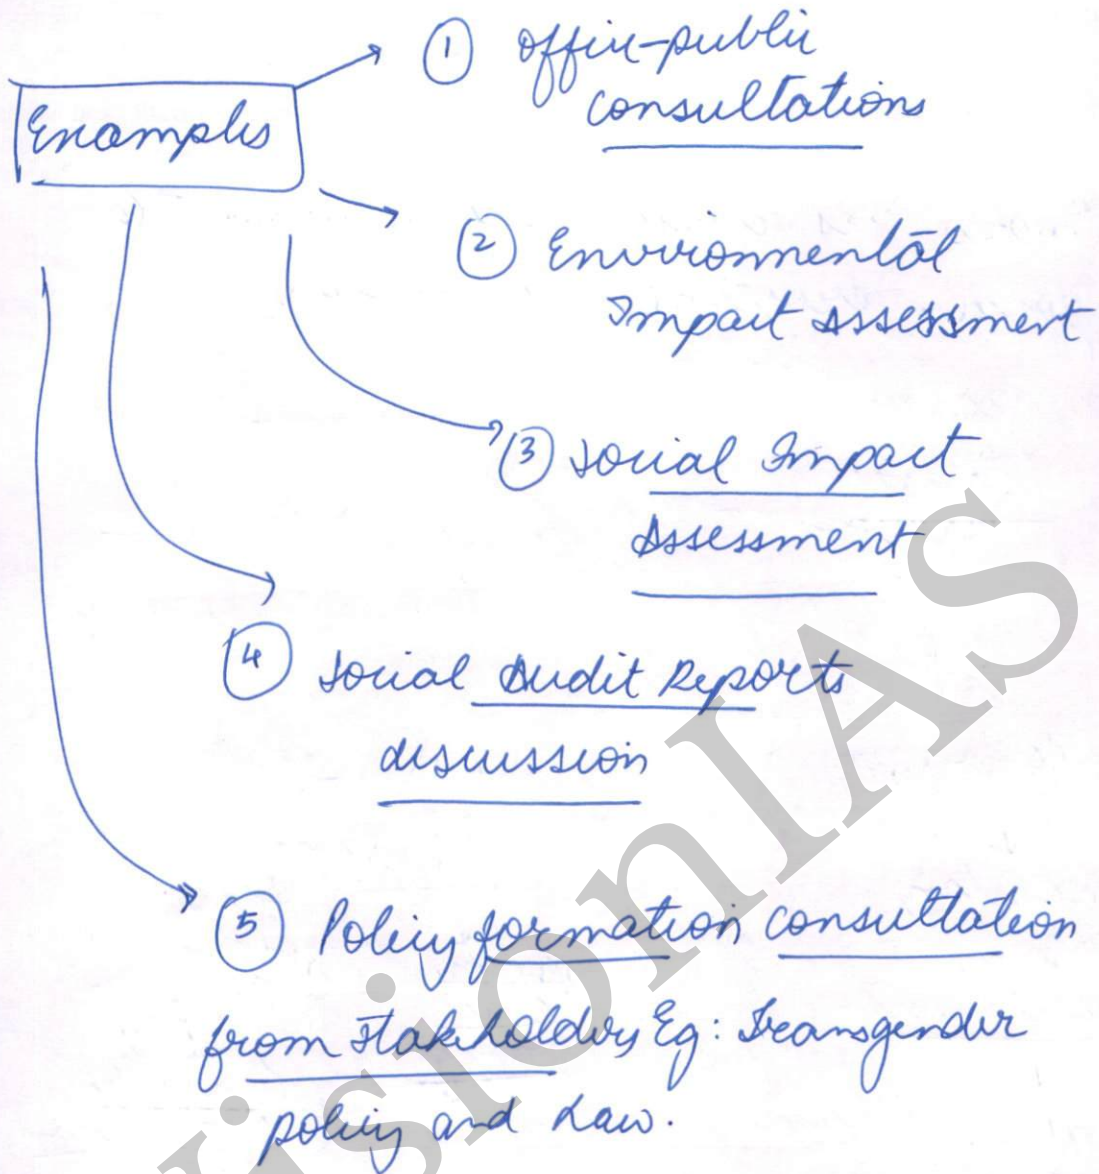 Examples
① Office-public
consultations
② Environmental
Impact Assessment
③ Social Impact
Assessment
④ Social Audit Reports
discussion
⑤ Policy formation consultation
from stakeholders Eg: Transgender
policy and Law.
VisionIAS